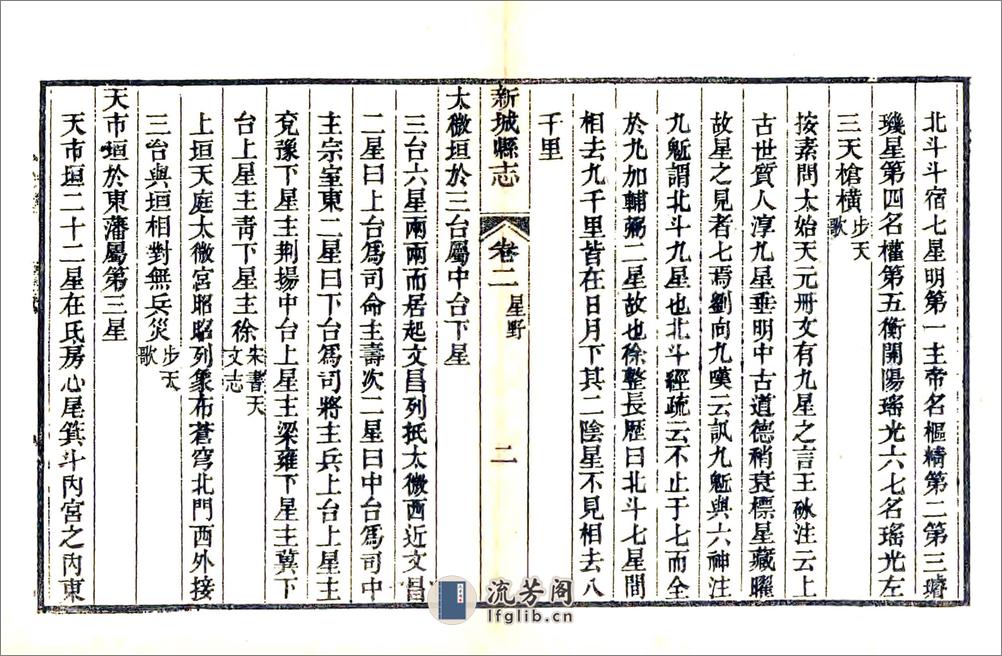 北斗斗宿七星明第一主帝名樞精第二第三璿
璣星第四名權第五衡開陽瑤光六七名瑤光左
三天槍橫步天歌
按素問太始天元冊文有九星之言王砯注云上
古世質人淳九星垂明中古道德稍衰標星藏曜
故星之見者七焉劉向九嘆云訊九鬿與六神注
九鬿謂北斗九星也北斗經疏云不止于七而全
於九加輔弼二星故也徐整長歷曰北斗七星間
相去九千里皆在日月下其二陰星不見相去八
千里
新城縣志
卷二
星野
二
太微垣於三台屬中台下星
三台六星兩兩而居起文昌列抵太微西近文昌
二星曰上台為司命主壽次二星曰中台為司中
主宗室東二星曰下台為司將主兵上台上星主
兗豫下星主荆揚中台上星主梁雍下星主冀下
台上星主靑下星主徐宋書天文志
上垣天庭太微宮昭昭列象布蒼穹北門西外接
三台與垣相對無兵災步天歌
天市垣於東藩屬第三星
天市垣二十二星在氐房心尾箕斗內宮之內東
流芳阁
lfglib.cn